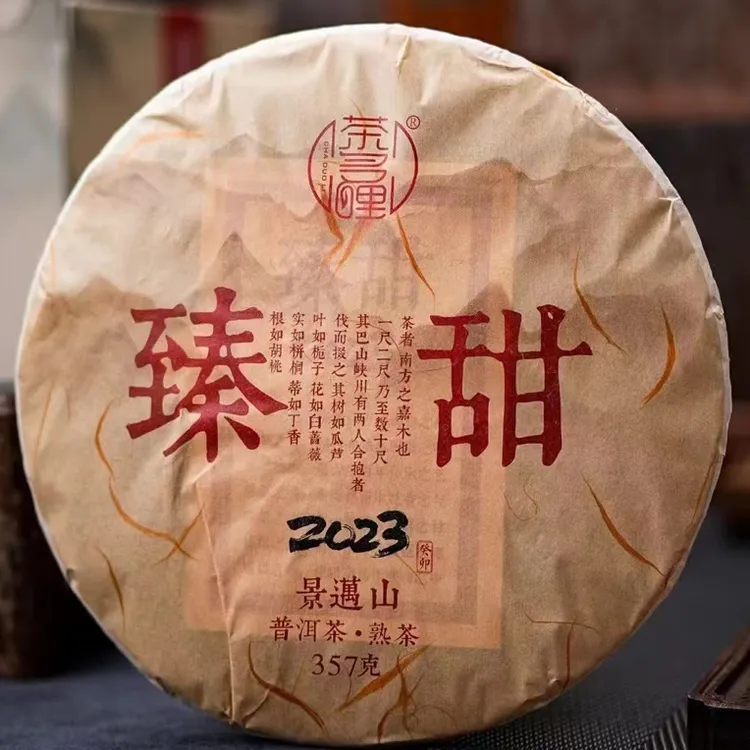 茶多哩®
CHA DUO
臻甜
茶者 南方之嘉木也
一尺二尺 乃至数十尺
其巴山峡川有两人合抱者
伐而掇之 其树如瓜芦
叶如栀子 花如白蔷薇
实如栟榈 蒂如丁香
根如胡桃
2023
癸卯
景邁山
普洱茶·熟茶
357克